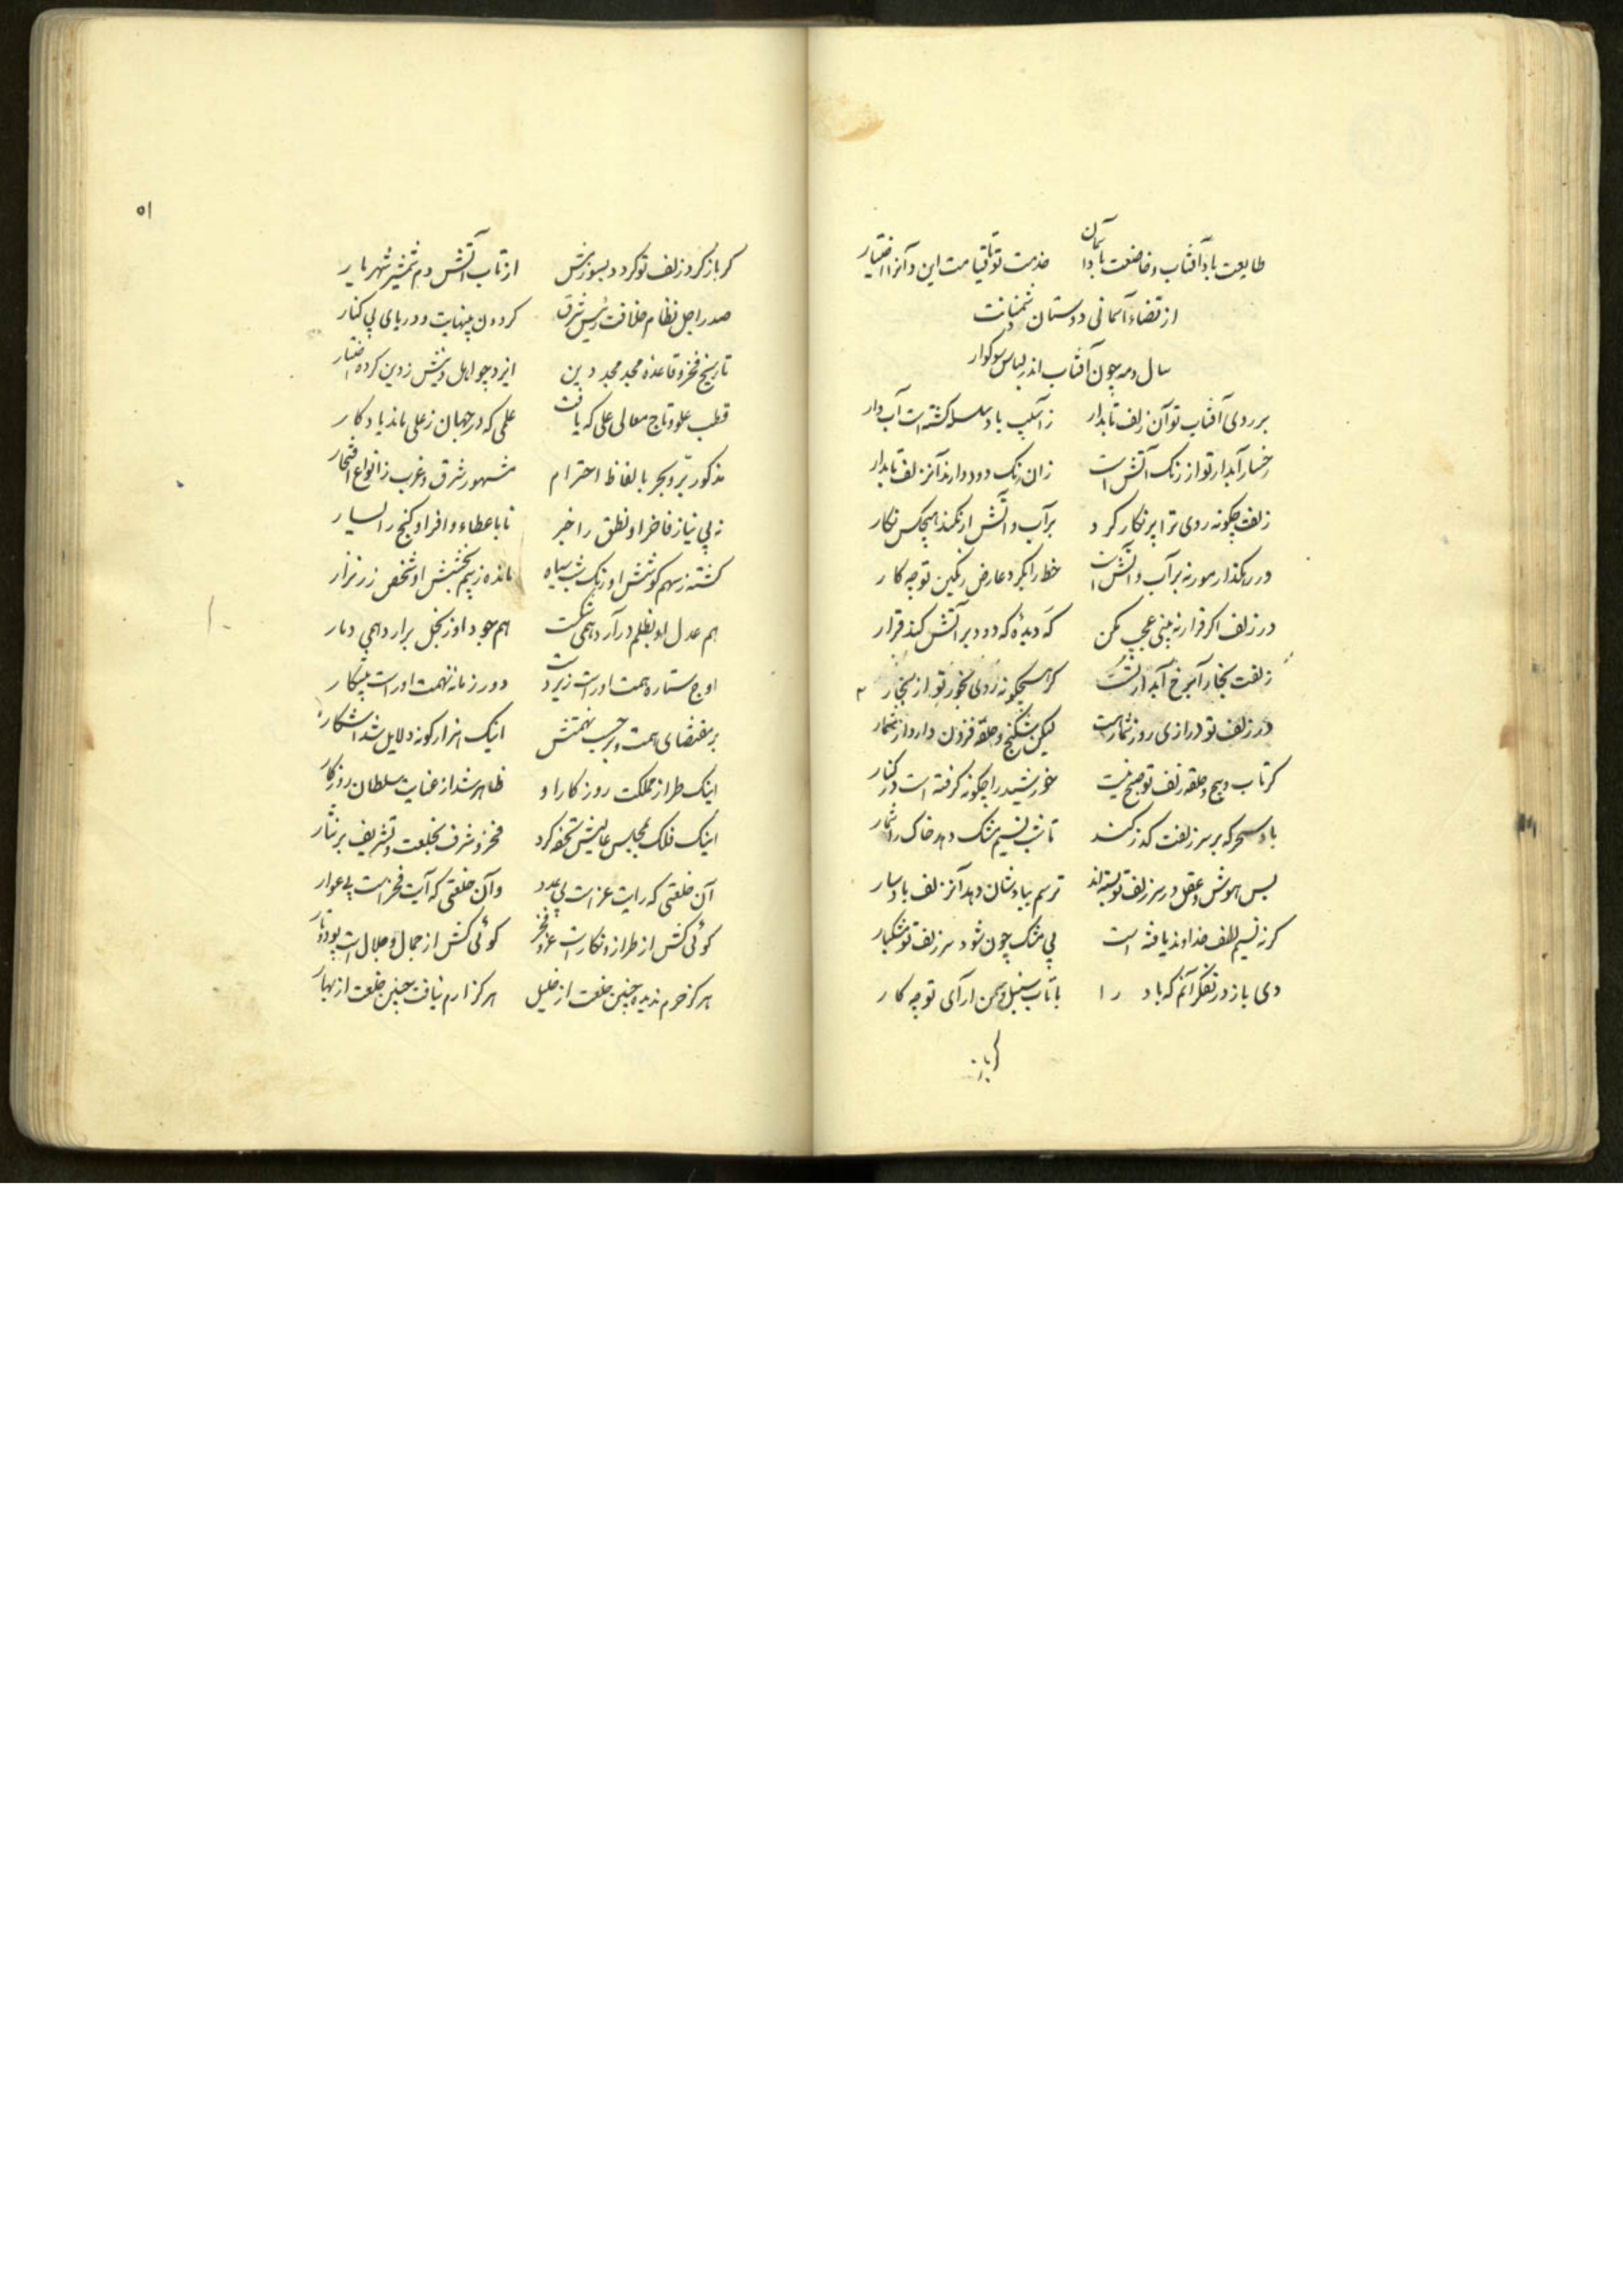 طایعت بادآفتاب و خاضعت باد آسمان خدمت تو تا قیامت این و آنرا اختیار
از قضاء آسمانی دوستان دشمنانت
سال و مه چون آفتاب اندر لباس سوکوار
بر روی آفتاب تو آن زلف تابدار زآسیب باد سلسله کشته است آب دار
رخسار آبدار تو از رنک آتش است زان رنک دود دارد آنزلف تابدار
زلفت چکونه روی ترا پر نکار کرد بر آب و آتش ار نکند هیچکس نکار
در رهکذار مور نه بر آب و آتش است خط را بکرد عارض رنکین تو چه کار
در زلف اکر قرار نه بینی عجب مکن که دیدهٔ که دود بر آتش کند قرار
زلفت بخار آبرخ آبدار تست کر هیچکونه روی بخور تو از بخار
در زلف تو درازی روز شمارست لیکن شکنج و حلقه فزون دارد از شمار
کر تاب و پیچ و حلقه زلف تو صبح نیست خورشید را چکونه کرفته است در کنار
باد سحر که بر سر زلفت کذر کند تا شب نسیم مشک دهد خاک را شمار
بس هوش و عقل در سر زلف تو بسته‌اند ترسم بباد شان دهد آنزلف بادسار
کر نه نسیم لطف خداوند یافته است بی مشک چون شود سر زلف تو مشکبار
دی باز در تفکر آنم که باد را با تاب سنبل و سمن آرای تو چه کار
کر باز
۵۱
کر باز کرد زلف تو کردد بسوزدش از تاب آتش دم شمشیر شهریار
صدر اجل نظام خلافت رئیس شرق کردون بینهایت و دریای بی کنار
تاریخ فخر و قاعده مجد مجد دین ایزد چو اهل دینش ز دین کرده اختیار
قطب علو و تاج معالی علی که یافت علمی که در جهان ز علی ماند یادکار
مذکور برّ و بحر بالفاظ احترام مشهور شرق و غرب ز انواع افتخار
نه بی نیاز فاخر او نطق را خبر نا با عطاء وافر او کنج را یسار
کشته ز سهم کوشش او رنک شب سیاه مانده ز بیم بخشش او شخص زر نزار
هم عدل او بظلم درآرد همی شکست هم جود او ز بخل برارد همی دمار
اوج ستاره همت اوراست زیردست دور زمانه نهمت اوراست پیشکار
بر مقتضای همت و بر حسب نهمتش اینک هزار کونه دلایل شد آشکار
اینک طراز مملکت روزکار او ظاهر شد از عنایت سلطان روزکار
اینک فلک بمجلس عالیش تحفه کرد فخر و شرف بخلعت و تشریف بر نثار
آن خلعتی که رایت عز است بی عدد وآن خلعتی که آیت فخر است بی عوار
کوئی کش از طراز و نکارست عز و فخر کوئی کش از جمال و جلال است پود و تار
هرکز حرم ندیده چنین خلعت از خلیل هرکز ارم نیافت چنین خلعت از بهار